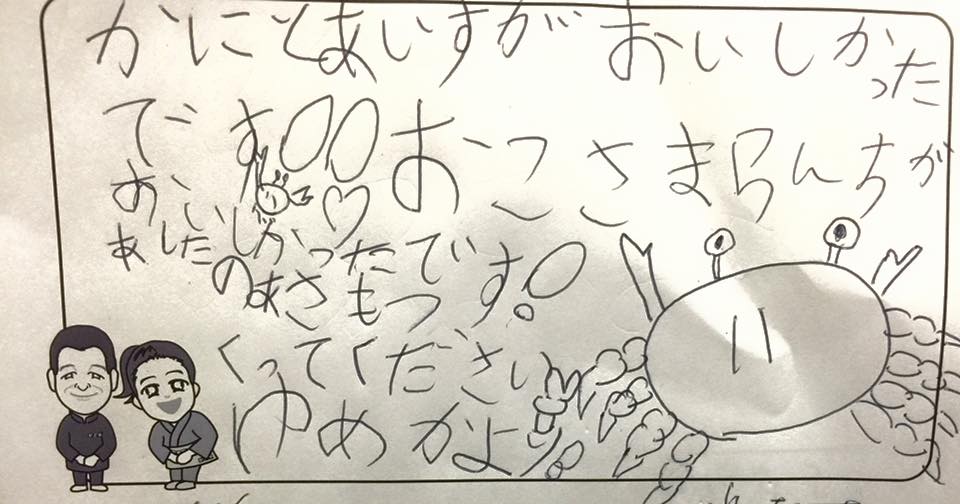 かにとあいすが おいしかった
です!! おこさまらんちが
おいしかったです!
あしたのあさもつ
くってください
ゆめかより